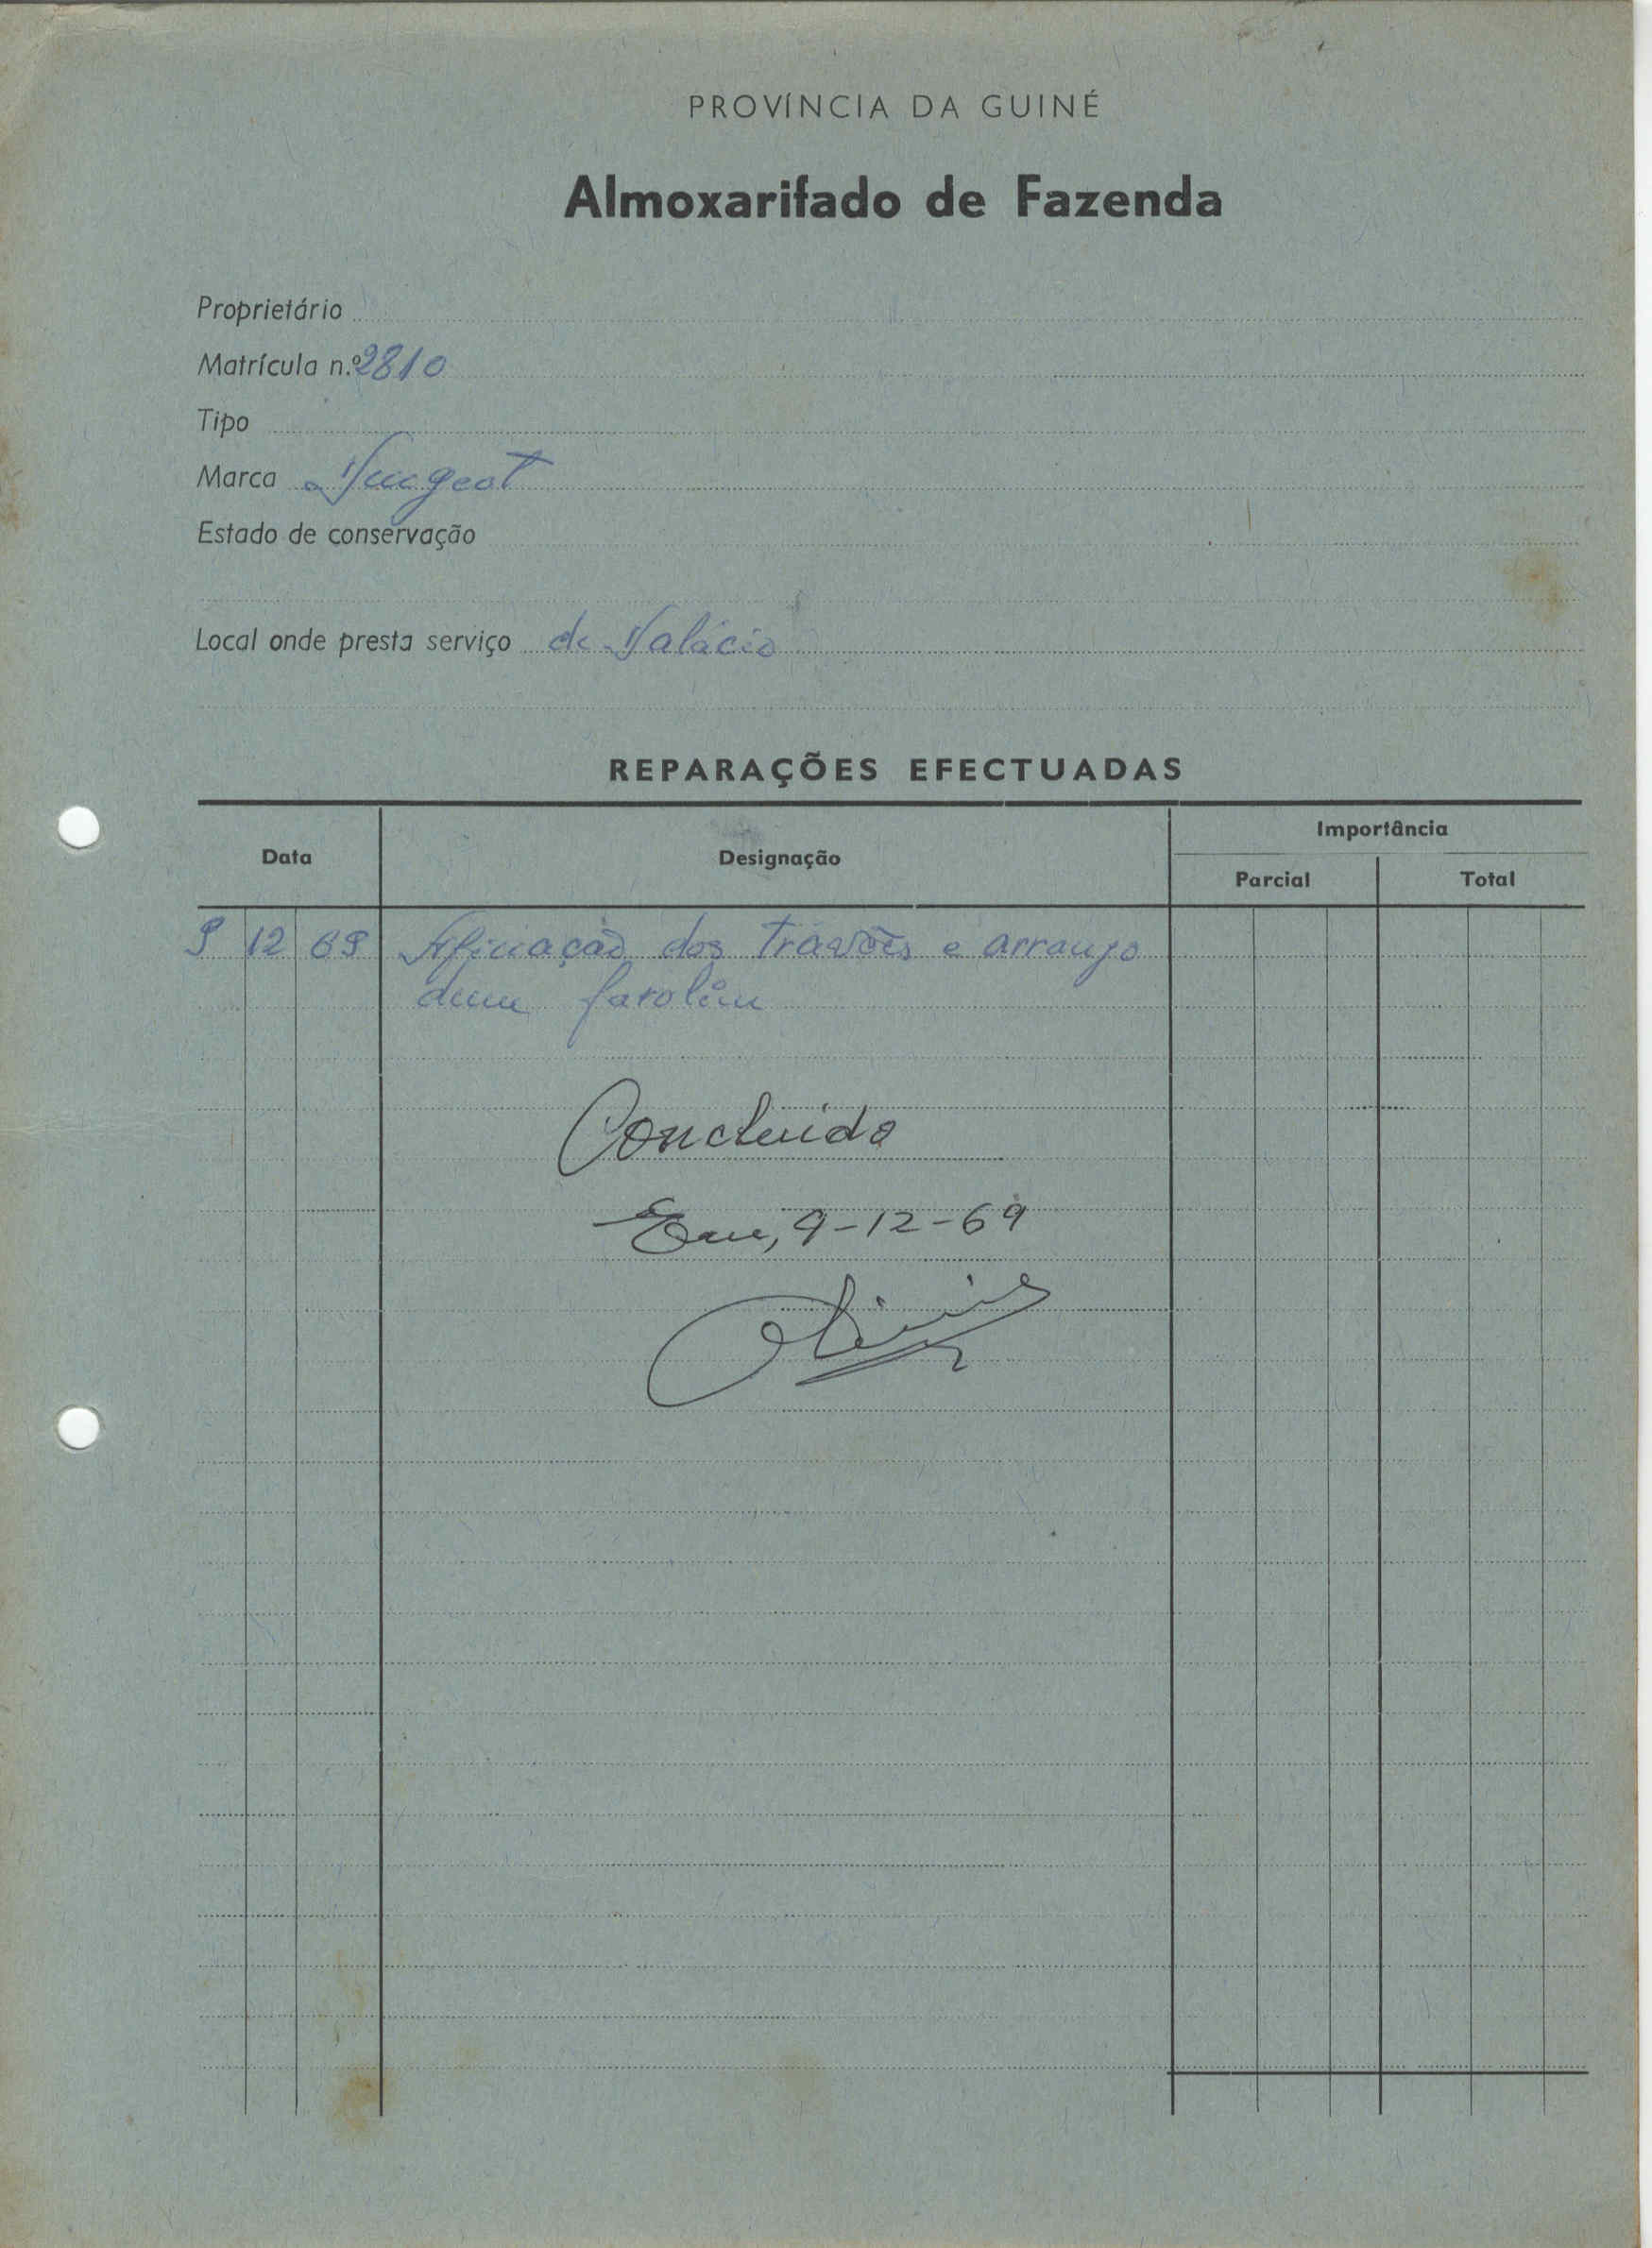 PROVÍNCIA DA GUINÉ
Almoxarifado de Fazenda
Proprietário
Matrícula n.º 2810
Tipo
Marca Peugeot
Estado de conservação
Local onde presta serviço do Palácio
REPARAÇÕES EFECTUADAS
Data Designação Importância
Parcial Total
9 12 69 Afinação dos travões e arranjo
dum farolim
Concluido
Em, 9-12-69